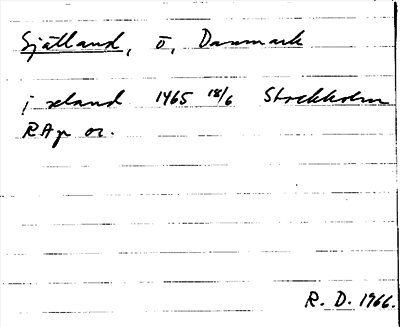 Sjätland, ö, Danmark
i sæland 1465 18/6 Stockholm
RAp or.
R. D. 1966.